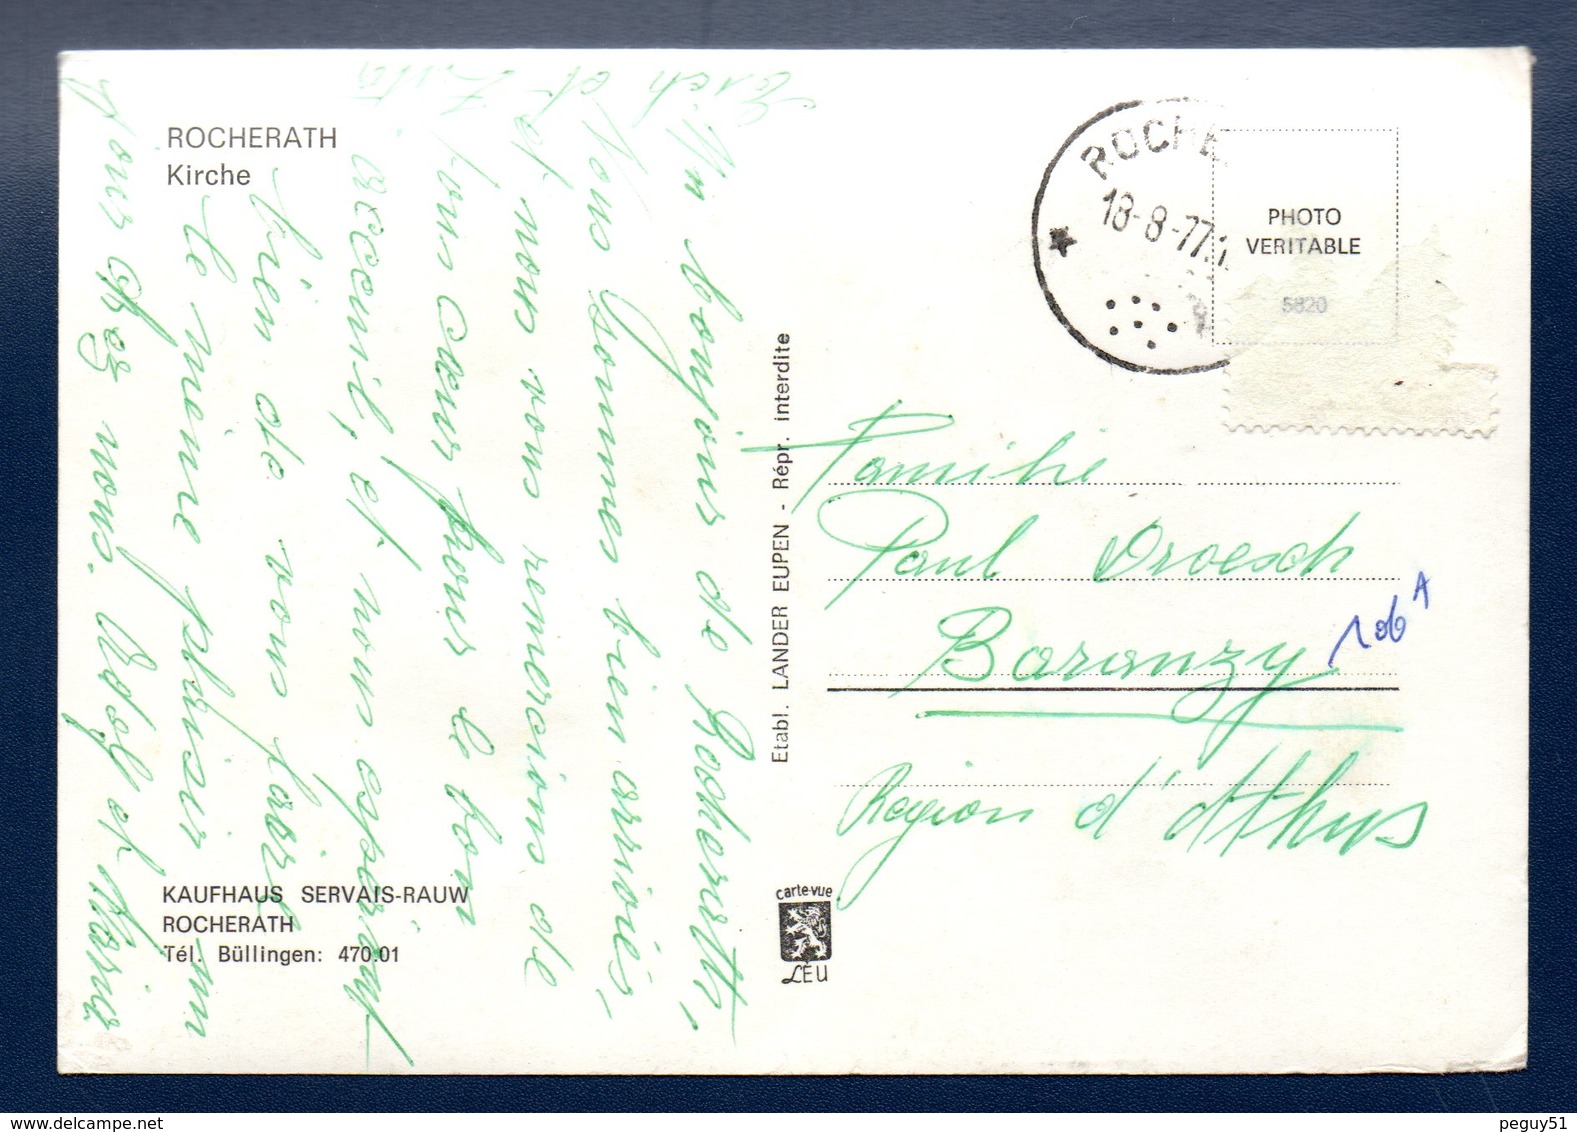 ROCHERATH
Kirche
Un bonjour de Rocherath,
Nous sommes bien arrivés,
et nous vous remercions de
bon cœur pour le bon
accceuil, et nous espérant
bien de vous faire
le même plaisir un
jour chez nous. Adolf et Maria
KAUFHAUS SERVAIS-RAUW
ROCHERATH
Tél. Büllingen: 470.01
Etabl. LANDER EUPEN - Répr. interdite
carte-vue
LEU
ROCHE
18-8-77
PHOTO
VERITABLE
5820
Familie
Paul Droesch
Baranzy
Région d'Athus
106 A
delcampe.net
peguy51